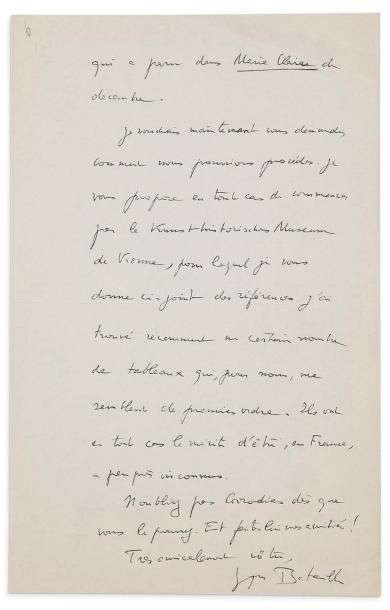 qui a paru dans Marie Claire de
décembre.
Je voudrais maintenant vous demander
comment nous pourrions procéder. Je
vous propose en tout cas de commencer
par le Kunsthistorisches Museum
de Vienne, pour lequel je vous
donne ci-joint des références. J'ai
trouvé récemment un certain nombre
de tableaux qui, pour nous, me
semblent de premier ordre. Ils ont
en tout cas le mérite d'être, en France,
à peu près inconnus.
N'oubliez pas Girodias dès que
vous le pourrez. Et
Très amicalement vôtre,
Georges Bataille